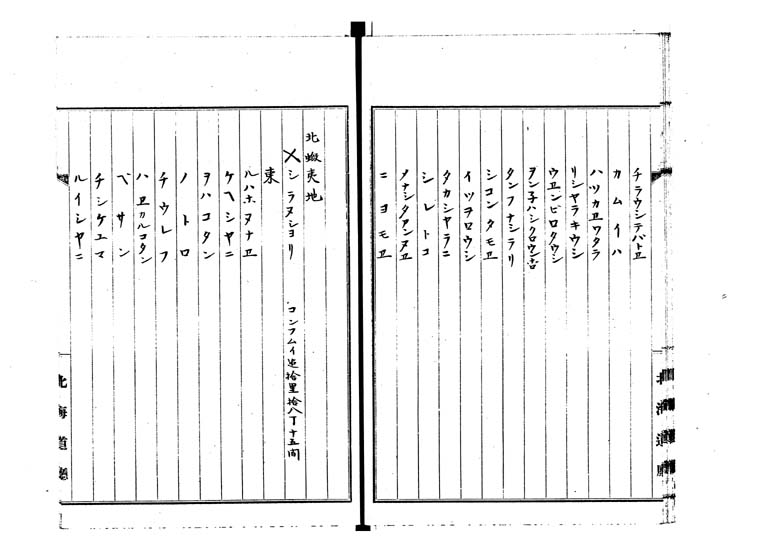 チラウシテバトヱ
カムイハ
ハツカヱワタラ
リシヤラキウシ
ウヱンピロクウシ
ヲン子ハシクロウン古
タンフナシラリ
シコンタモヱ
イツヲロウシ
タカシヤラニ
シレトコ
メナシタアンヌヱ
ニヨモヱ
北海道廳
北蝦夷地
×シラヌシヨリ コンフムイ迠拾里拾八丁十五間
東
ルハホヌナヱ
ケヘシヤニ
ヲハコタン
ノトロ
チウレフ
ハヱカルコタン
ベサン
チシケユマ
ルイシヤニ
北海道廳